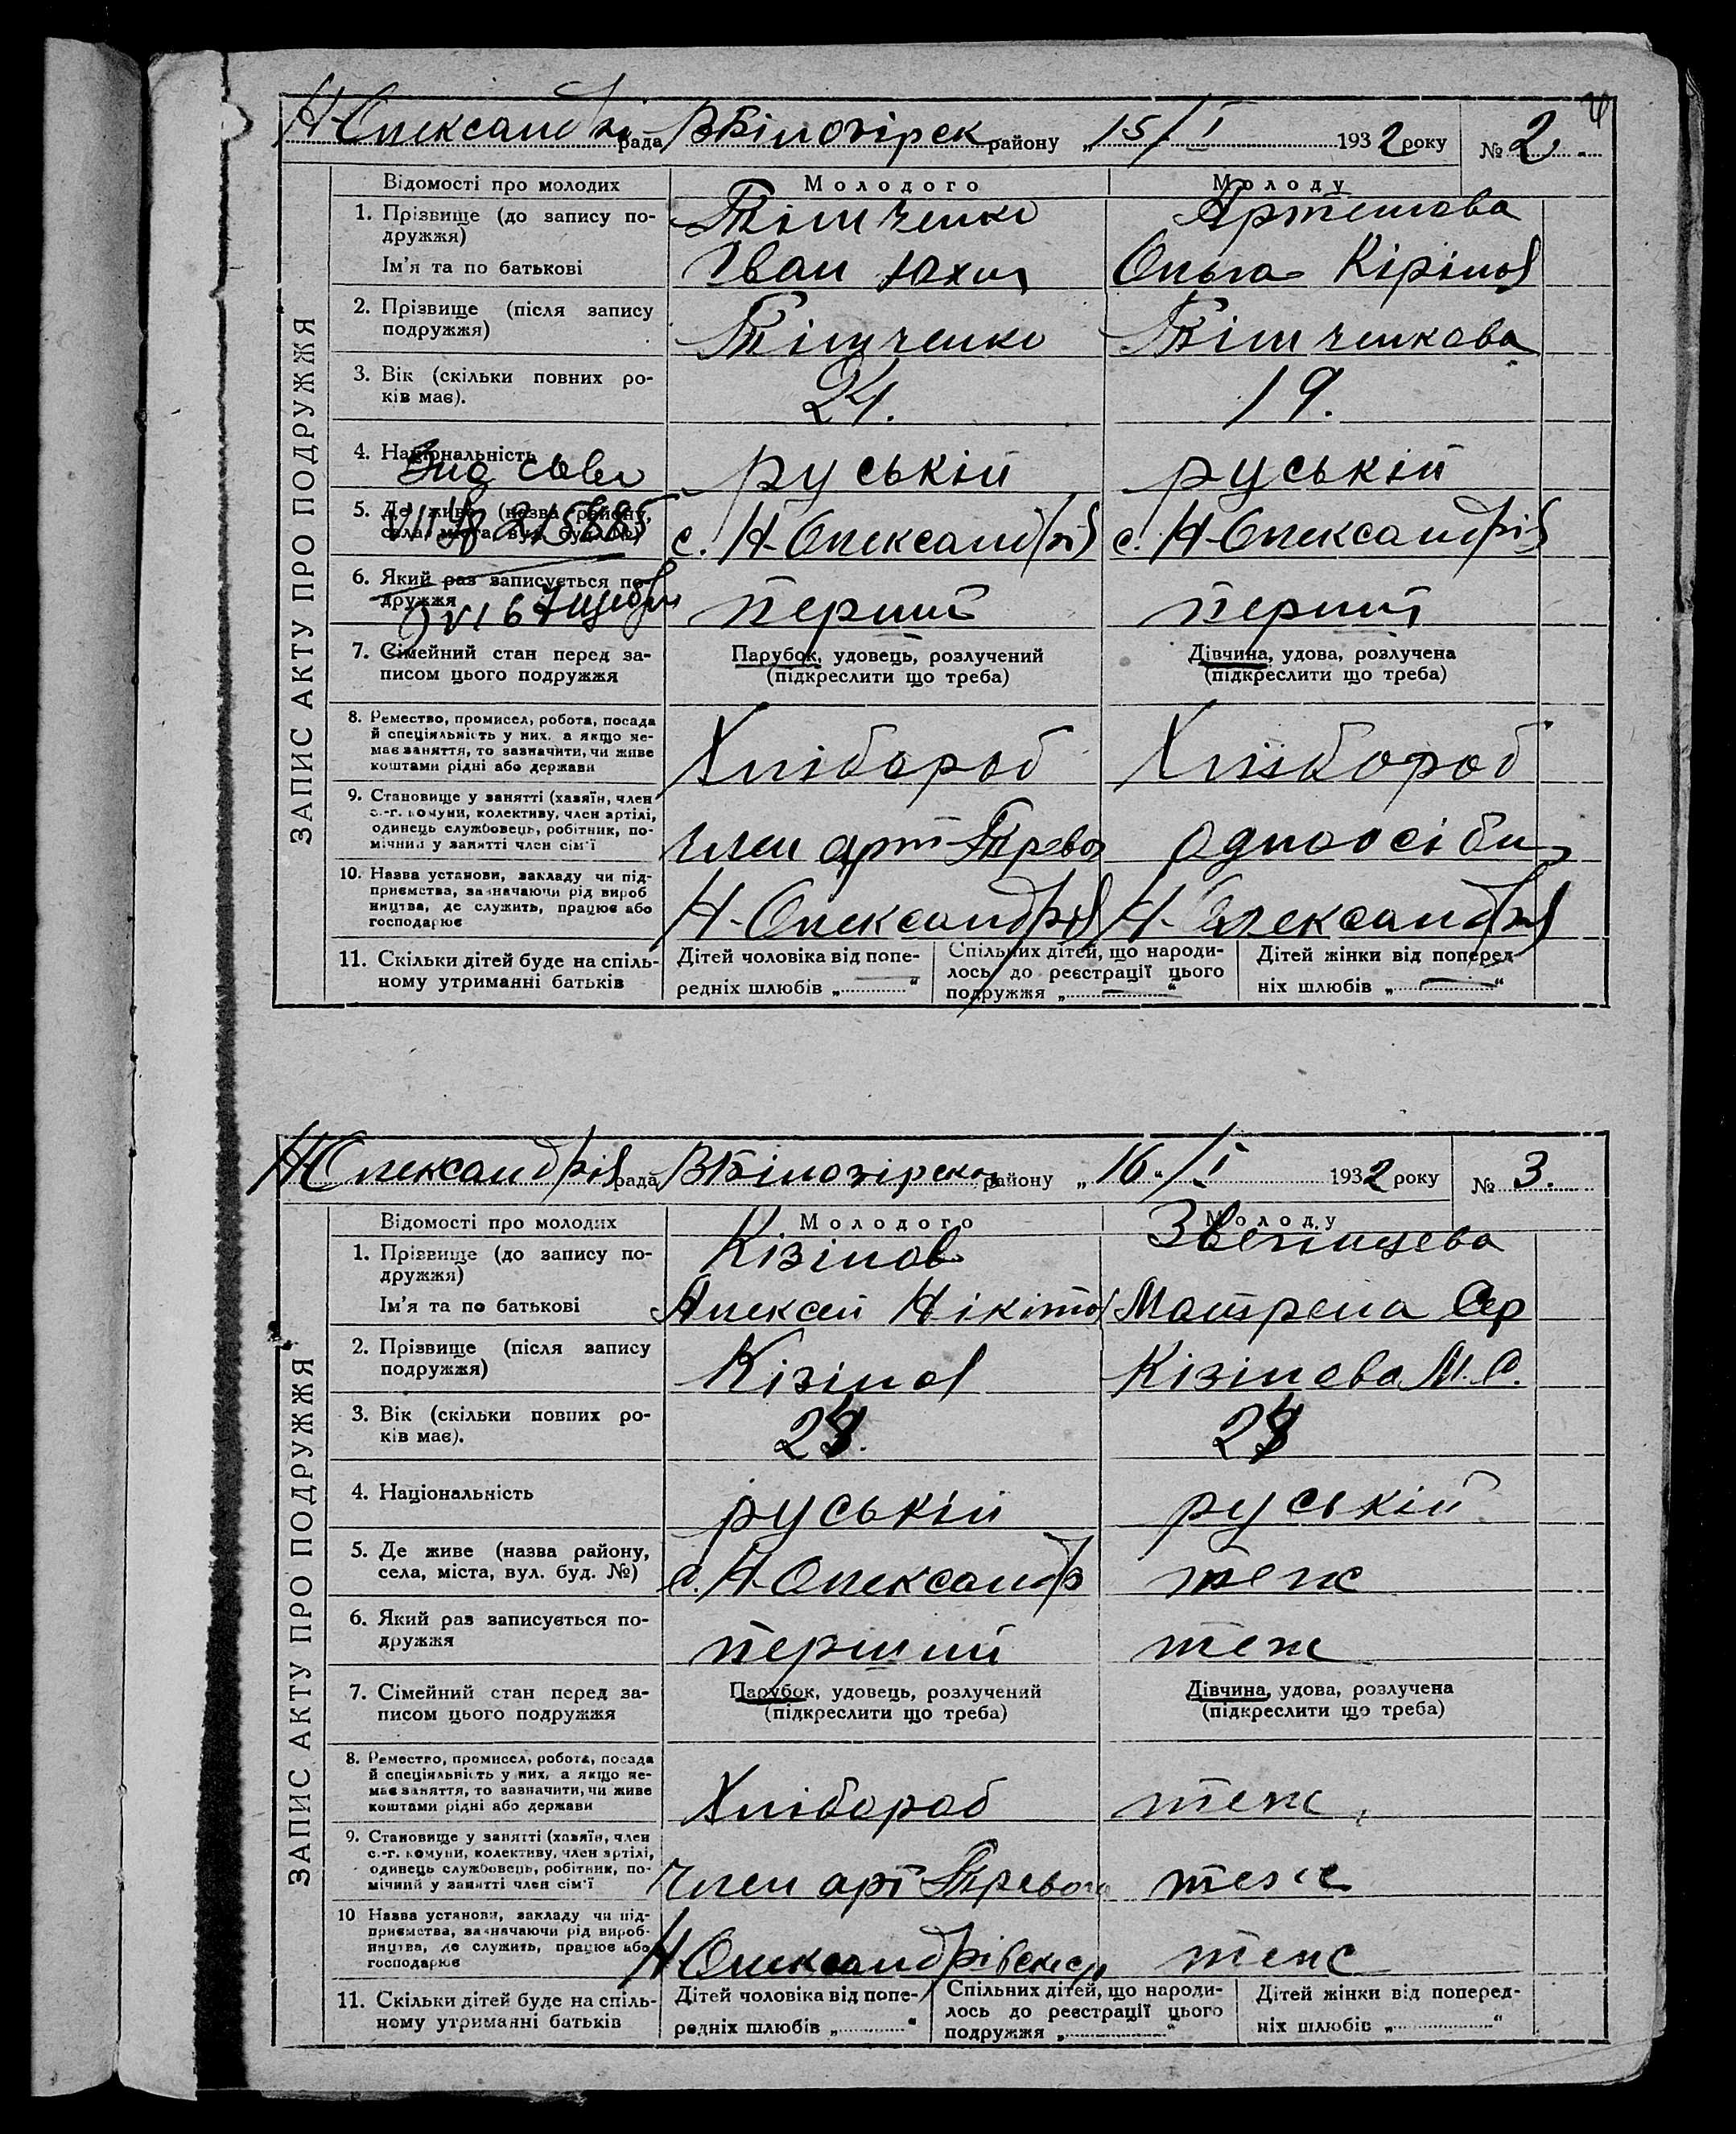 Н-Олександрів рада ВБілозірск району „15/I 1932 року № 2
Відомості про молодих Молодого Молоду
1. Прізвище (до запису подружжя) Тімченко Артемова
Ім'я та по батькові Іван Юхим Ольга Кірілов
2. Прізвище (після запису подружжя) Тімченко Тімченкова
3. Вік (скільки повних років має). 24. 19.
4. Національність руській руській
5. Де живе (назва району, села, міста, вул. буд. №) с. Н-Олександрів с. Н-Олександрів
6. Який раз записується подружжя перший перший
7. Сімейний стан перед записом цього подружжя Парубок, удовець, розлучений (підкреслити що треба) Дівчина, удова, розлучена (підкреслити що треба)
8. Ремество, промисел, робота, посада й спеціяльність у них, а якщо немає заняття, то зазначити, чи живе коштами рідні або держави Хлібороб Хлібороб
9. Становище у занятті (хазяїн, член с.-г. комуни, колективу, член артілі, одинець службовець, робітник, помічний у занятті член сім'ї член арт одноосібн
10. Назва установи, закладу чи підприємства, зазначаючи рід виробництва, де служить, працює або господарює Н-Олександрів Н-Олександрів
11. Скільки дітей буде на спільному утриманні батьків Дітей чоловіка від попередніх шлюбів „—“ Спільних дітей, що народилось до реєстрації цього подружжя „—“ Дітей жінки від попередніх шлюбів „—“
ЗАПИС АКТУ ПРО ПОДРУЖЖЯ
Н-Олександрів рада ВБілозірск району „16“/I 1932 року № 3.
Відомості про молодих Молодого Молоду
1. Прізвище (до запису подружжя) Кізілов
Ім'я та по батькові Алексей Нікітов Матрена Сер
2. Прізвище (після запису подружжя) Кізілов Кізілева М. С.
3. Вік (скільки повних років має).
4. Національність руській руській
5. Де живе (назва району, села, міста, вул. буд. №) с. Н-Олександр теж
6. Який раз записується подружжя перший теж
7. Сімейний стан перед записом цього подружжя Парубок, удовець, розлучений (підкреслити що треба) Дівчина, удова, розлучена (підкреслити що треба)
8. Ремество, промисел, робота, посада й спеціяльність у них, а якщо немає заняття, то зазначити, чи живе коштами рідні або держави Хлібороб теж
9. Становище у занятті (хазяїн, член с.-г. комуни, колективу, член артілі, одинець службовець, робітник, помічний у занятті член сім'ї Член арт теж
10 Назва установи, закладу чи підприємства, зазначаючи рід виробництва, де служить, працює або господарює теж
11. Скільки дітей буде на спільному утриманні батьків Дітей чоловіка від попередніх шлюбів „ “ Спільних дітей, що народилось до реєстрації цього подружжя „ “ Дітей жінки від попередніх шлюбів „ “
ЗАПИС АКТУ ПРО ПОДРУЖЖЯ